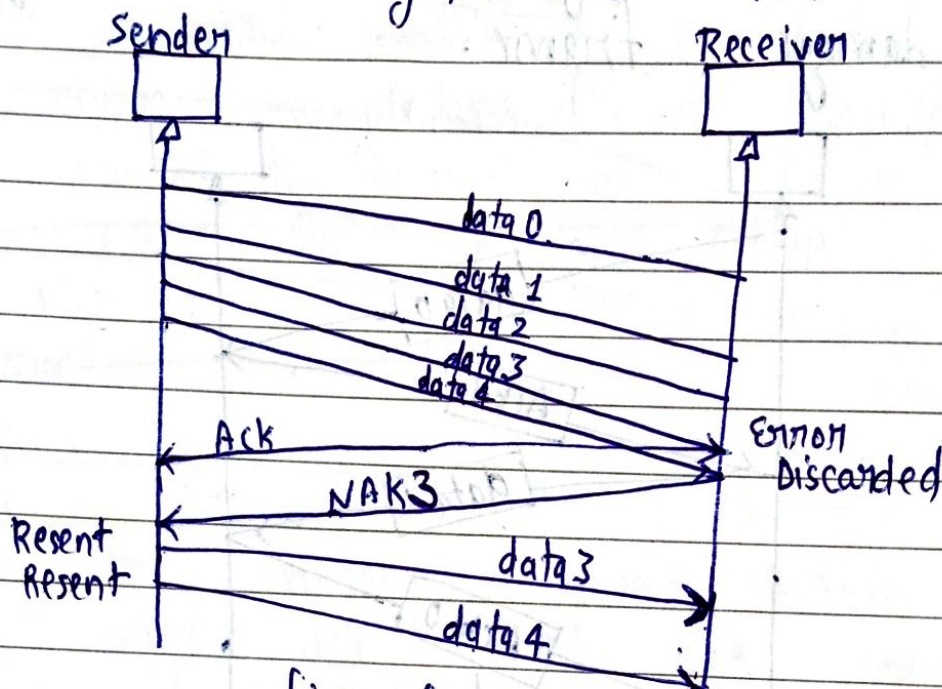 Sender
Receiver
data 0
data 1
data 2
data 3
data 4
Ack
Error
Discarded
NAK3
Resent
Resent
data3
data 4